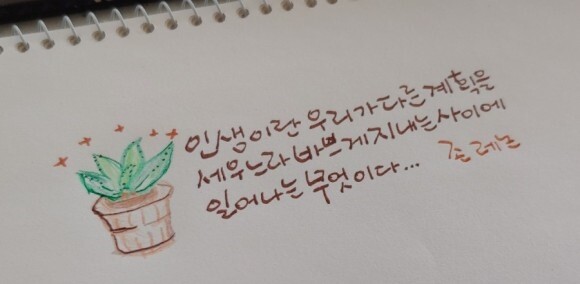 인생이란 우리가 다른 계획을
세우느라 바쁘게 지내는 사이에
일어나는 무엇이다... 존 레논